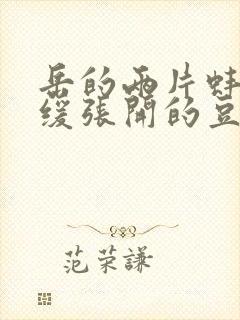 岳的两片蚌
缓张開的豆
范荣謙